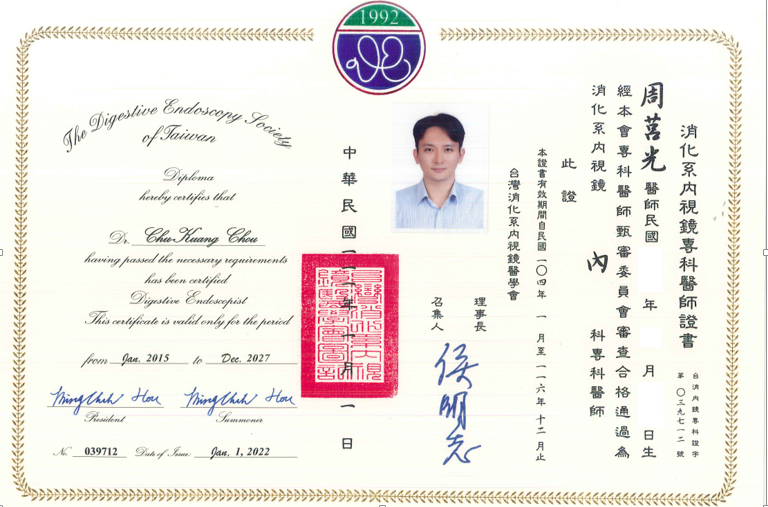 1992
The Digestive Endoscopy Society
of Taiwan
Diploma
hereby certifies that
Dr. Chu-Kuang Chou
having passed the necessary requirements
has been certified
Digestive Endoscopist
This certificate is valid only for the period
from Jan. 2015 to Dec. 2027
Ming Chih Hou Ming Chih Hou
President Summoner
No. 039712 Date of Issue Jan, 1, 2022
消化系內視鏡專科醫師證書
台消內鏡專科證字
第〇三九七一二號
周莒光醫師民國 年 月 日生
經本會專科醫師甄審委員會審查合格通過為
消化系內視鏡 內 科專科醫師
此證
本證書有效期間自民國一〇四年 一 月至一一六年十二月止
台灣消化系內視鏡醫學會
理事長
召集人
侯明志
中華民國一一一年一月一日